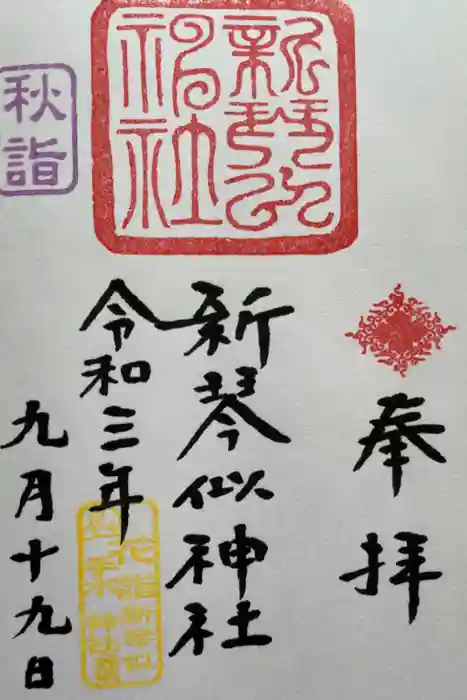 奉拝
新琴似神社
令和三年
九月十九日
新琴似
神社
秋詣